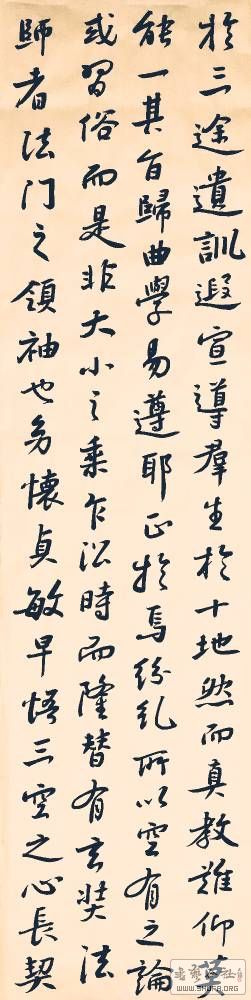 於三途遺訓遐宣導羣生於十地然而真教難仰莫
能一其旨歸曲學易遵耶正於焉紛糺所以空有之論
或習俗而是非大小之乘乍沿時而隆替有玄奘法
師者法門之領袖也幼懷貞敏早悟三空之心長契
WWW.SHUFA.ORG